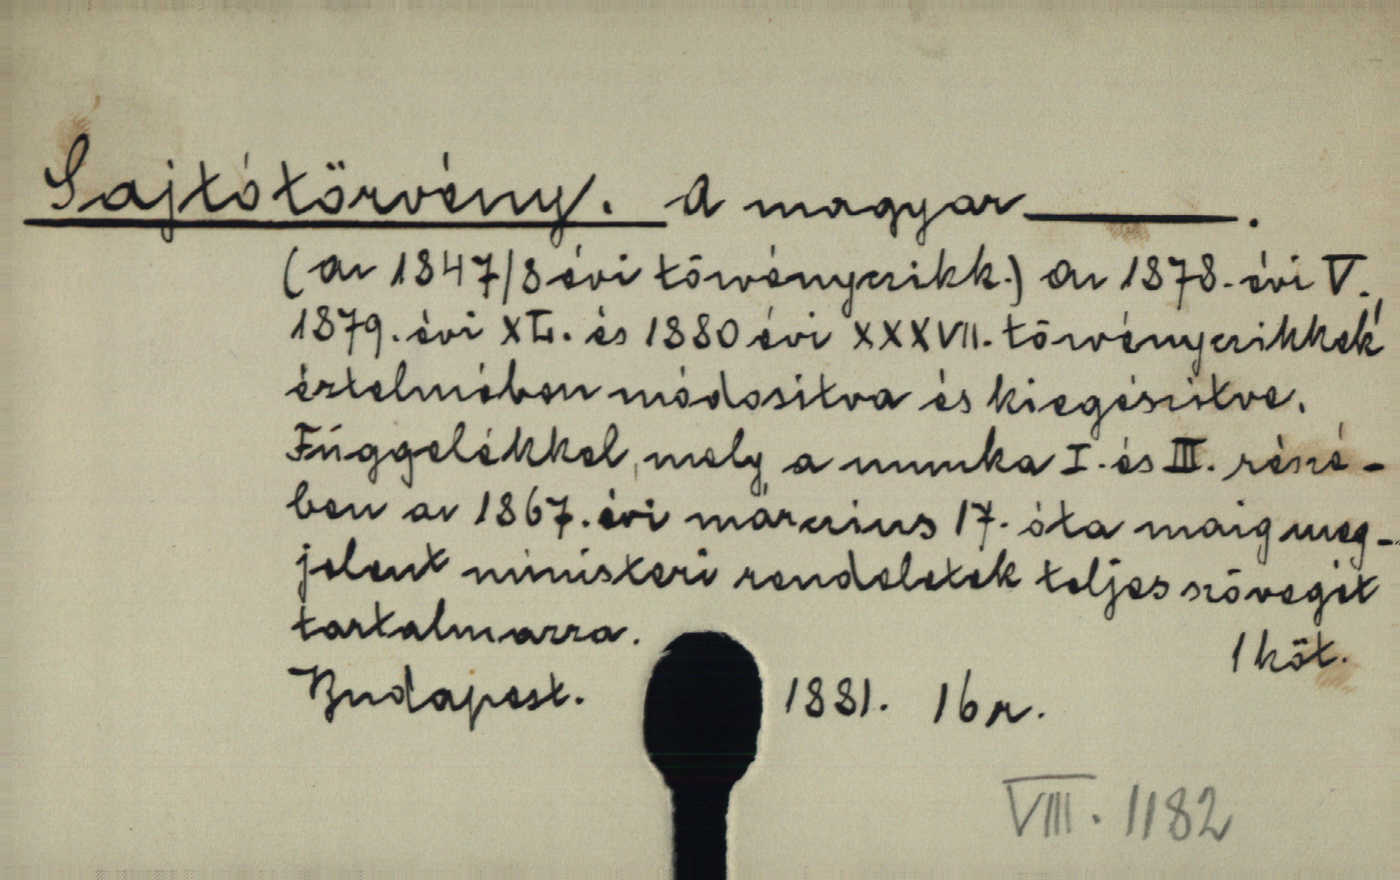 Sajtótörvény. A magyar ———.
(Az 1847/8 évi törvényczikk.) Az 1878. évi V.,
1879. évi XL. és 1880 évi XXXVII. törvényczikkek
értelmében módositva és kiegészitve.
Függelékkel, mely a munka I. és III. részé-
ben az 1867. évi márczius 17. óta maig meg-
jelent ministeri rendeletek teljes szövegét
tartalmazza.
1 köt.
Budapest. 1881. 16 r.
VIII. 1182